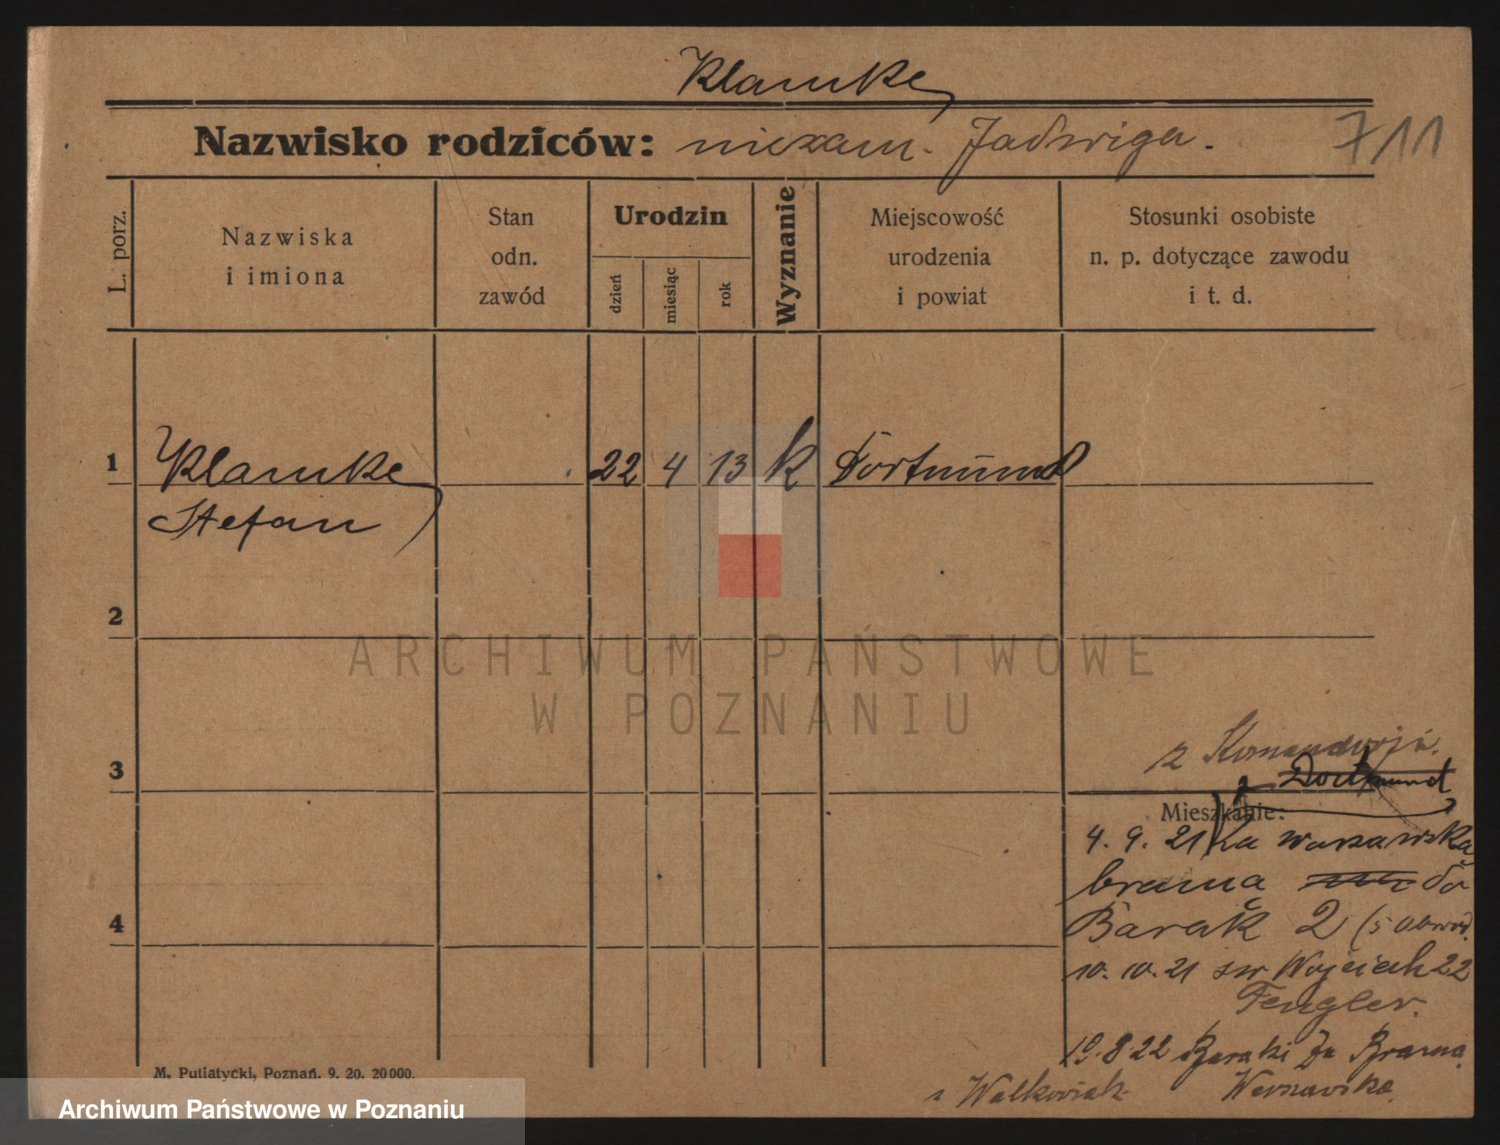 Klamke
Nazwisko rodziców: niezam. Jadwiga.
711
L. porz.
Nazwiska
i imiona
Stan
odn.
zawód
Urodzin
dzień
miesiąc
rok
Wyznanie
Miejscowość
urodzenia
i powiat
Stosunki osobiste
n. p. dotyczące zawodu
i t. d.
1 Klamke 22 4 13 k Dortmund
Stefan
2
ARCHIWUM PAŃSTWOWE
W POZNANIU
3
z Komandorji.
z Dortmund
Mieszkanie:
4. 9. 21 Za warszawską
bramą do
4
Barak 2 (5 Obwód.
10. 10. 21 św Wojciech 22
Fengler.
19. 8 22 Baraki Za Brama
Warszawska
Walkowiak
M. Putiatycki, Poznań. 9. 20. 20000.
Archiwum Państwowe w Poznaniu